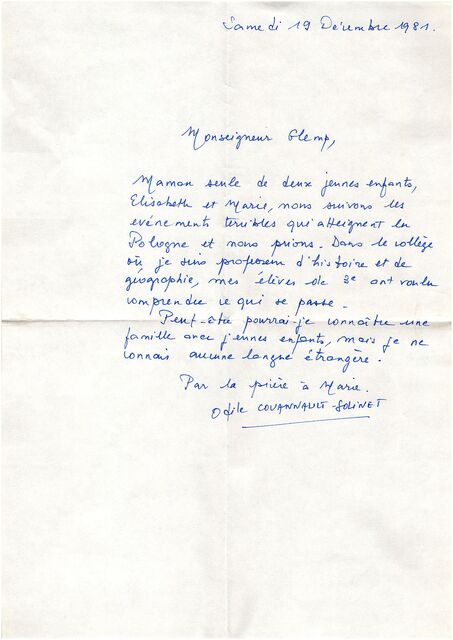 Samedi 19 Décembre 1981.
Monseigneur Glemp,
Maman seule de deux jeunes enfants,
Elisabeth et Marie, nous suivons les
evénements terribles qui atteignent la
Pologne et nous prions. Dans le collège
où je suis professeur d'histoire et de
géographie, mes élèves de 3e ont voulu
comprendre ce qui se passe.
Peut-être pourrai-je connaître une
famille avec jeunes enfants, mais je ne
connais aucune langue étrangère.
Par la prière à Marie.
Odile COUANNAULT-SOLINET